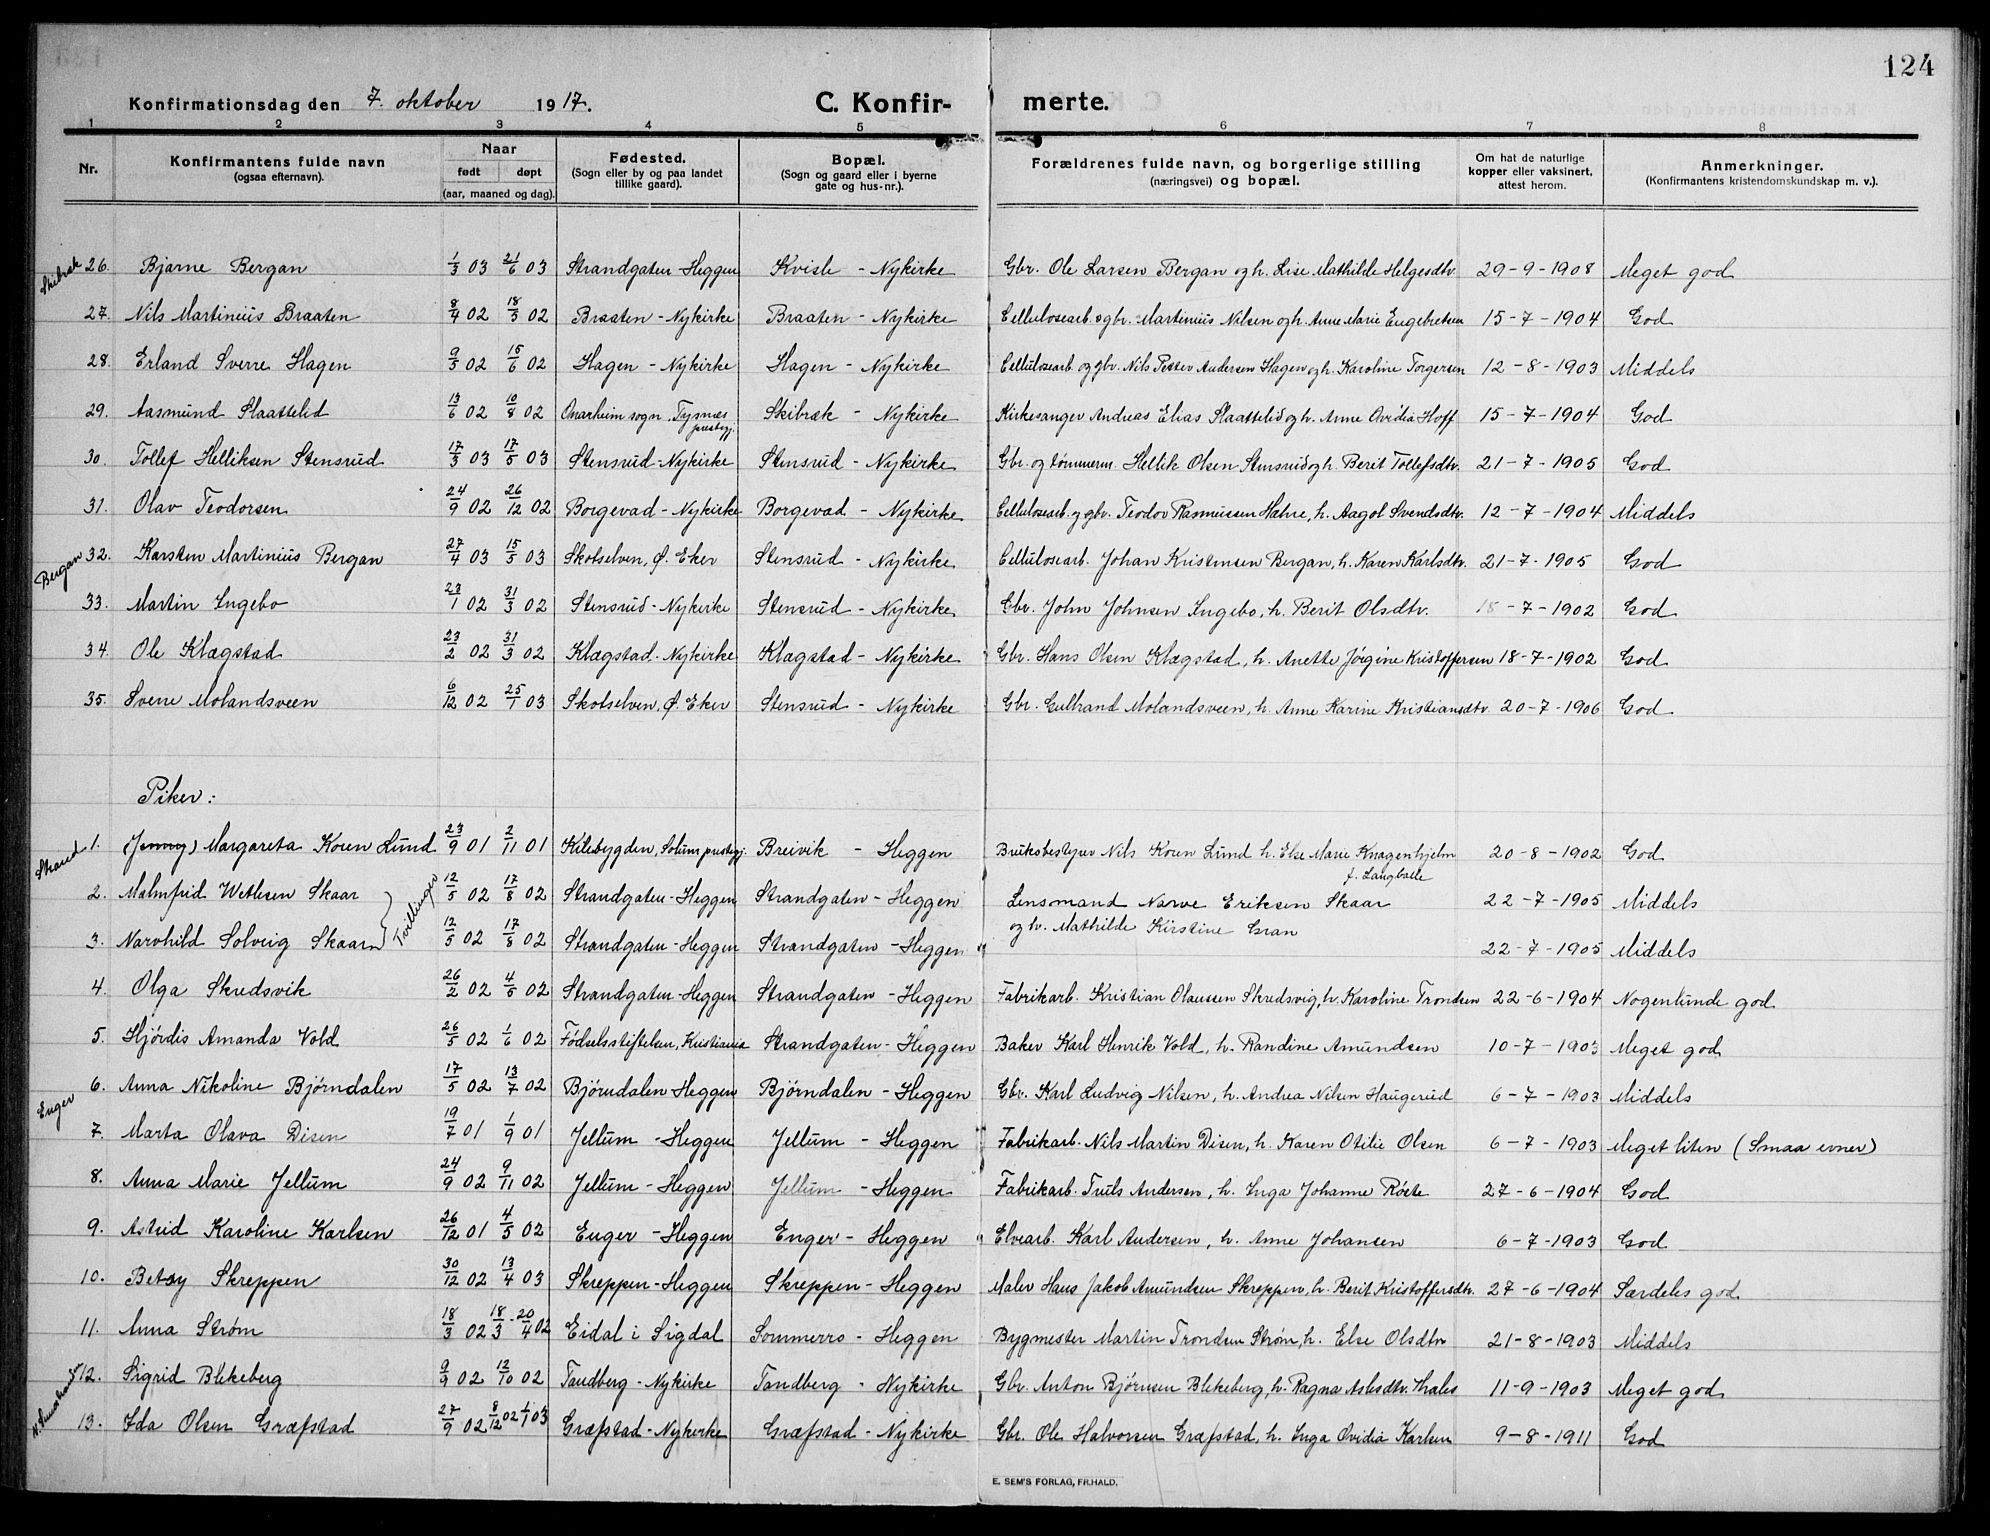 124
Konfirmationsdag den 7. oktober 1917. C. Konfir- merte.
1 2 3 4 5 6 7 8
Nr. Konfirmantens fulde navn (ogsaa efternavn). Naar født døpt (aar, maaned og dag). Fødested. (Sogn eller by og paa landet tillike gaard). Bopæl. (Sogn og gaard eller i byerne gate og hus-nr.). Forældrenes fulde navn, og borgerlige stilling (næringsvei) og bopæl. Om hat de naturlige kopper eller vaksinert, attest herom. Anmerkninger. (Konfirmantens kristendomskundskap m. v.).
Skibræk 26. Bjarne Bergan 1/3 03 21/6 03 Strandgaten - Heggen Kvisle - Nykirke Gbr. Ole Larsen Bergan og h. Lise Mathilde Helgesdtr. 29-9-1908 Meget god
27. Nils Martinius Braaten 8/4 02 18/5 02 Braaten - Nykirke Braaten - Nykirke Cellulosearb. og gbr. Martinius Nilsen og h. Anne Marie Engebretsen 15-7-1904 God
28. Erland Sverre Hagen 9/5 02 15/6 02 Hagen - Nykirke Hagen - Nykirke Cellulosearb. og gbr. Nils Petter Andersen Hagen og h. Karoline Torgersen 12-8-1903 Middels
29. Aasmund Slaattelid 13/6 02 10/8 02 Onarheim sogn, Tysnæs prestegj. Skibræk - Nykirke Kirkesanger Andreas Elias Slaattelid og h. Anne Ovidia Hoff 15-7-1904 God
30. Tollef Helliksen Stensrud 17/3 03 17/5 03 Stensrud - Nykirke Stensrud - Nykirke Gbr. og tømmerm. Hellik Olsen Stensrud og h. Berit Tollefsdtr. 21-7-1905 God
31. Olav Teodorsen 24/9 02 26/12 02 Borgevad - Nykirke Borgevad - Nykirke Cellulosearb. og gbr. Teodor Rasmussen Hahre, h. Aagot Svendsdtr. 12-7-1904 Middels
Bergan 32. Karsten Martinius Bergan 27/4 03 15/5 03 Skotselven, Ø. Eker Stensrud - Nykirke Cellulosearb. Johan Kristensen Bergan, h. Karen Karlsdtr. 21-7-1905 God
33. Martin Ingebo 23/1 02 31/3 02 Stensrud - Nykirke Stensrud - Nykirke Gbr. John Johnsen Ingebo, h. Berit Olsdtr. 18-7-1902 God
34. Ole Klægstad 23/2 02 31/3 02 Klægstad - Nykirke Klægstad - Nykirke Gbr. Hans Olsen Klægstad, h. Anette Jørgine Kristoffersen 18-7-1902 God
35. Sverre Molandsveen 6/12 02 25/1 03 Skotselven, Ø. Eker Stensrud - Nykirke Gbr. Gulbrand Molandsveen, h. Anne Karine Kristiansdtr. 20-7-1906 God
Piker:
Strand 1. (Jenny) Margareta Koren Lund 23/9 01 2/11 01 Kilebygden, Solum prestegj. Breivik - Heggen Bruksbestyrer Nils Koren Lund h. Else Marie Knagenhjelm f. Langballe 20-8-1902 God
2. Malmfrid Wetlesen Skaar 12/5 02 17/8 02 Strandgaten - Heggen Strandgaten - Heggen Lensmand Narve Eriksen Skaar 22-7-1905 Middels
Tvillinger
og h. Mathilde Kirstine Gran
3. Narvhild Solveig Skaar 12/5 02 17/8 02 Strandgaten - Heggen Strandgaten - Heggen 22-7-1905 Middels
4. Olga Skredsvik 26/2 02 4/5 02 Strandgaten - Heggen Strandgaten - Heggen Fabrikarb. Kristian Olaussen Skredsvig, h. Karoline Trondsen 22-6-1904 Nogenlunde god
5. Hjørdis Amanda Vold 26/5 02 1/6 02 Fødselsstiftelsen, Kristiania Strandgaten - Heggen Baker Karl Henrik Vold, h. Randine Amundsen 10-7-1903 Meget god
6. Anna Nikoline Bjørndalen 17/5 02 13/7 02 Bjørndalen - Heggen Bjørndalen - Heggen Gbr. Karl Ludvig Nilsen, h. Andrea Nilsen Haugerud 6-7-1903 Middels
Enger 7. Marta Olava Disen 19/7 01 1/9 01 Jellum - Heggen Jellum - Heggen Fabrikarb. Nils Martin Disen, h. Karen Otilie Olsen 6-7-1903 Meget liten (Smaa evner)
8. Anna Marie Jellum 24/9 02 9/11 02 Jellum - Heggen Jellum - Heggen Fabrikarb. Truls Andersen, h. Inga Johanne Røste 27-6-1904 God
9. Astrid Karoline Karlsen 26/12 01 4/5 02 Enger - Heggen Enger - Heggen Elvearb. Karl Andersen, h. Anne Johansen 6-7-1903 God
10. Betsy Skreppen 30/12 02 13/4 03 Skreppen - Heggen Skreppen - Heggen Maler Hans Jakob Amundsen Skreppen, h. Berit Kristoffersdtr. 27-6-1904 Særdeles god
11. Anna Strøm 18/3 02 18/3 - 20/4 02 Eidal i Sigdal Sommerro - Heggen Bygmester Martin Trondsen Strøm, h. Else Olsdtr 21-8-1903 Middels
12. Sigrid Blekeberg 9/9 02 12/10 02 Tandberg - Nykirke Tandberg - Nykirke Gbr. Anton Bjørnsen Blekeberg, h. Ragna Aslesdtr. Thales 11-9-1903 Meget god
13. Ida Olsen Græfstad 27/9 02 8/12 02 1/1 03 Græfstad - Nykirke Græfstad - Nykirke Gbr. Ole Halvorsen Græfstad, h. Inga Ovidia Karlsen 9-8-1911 God
E. SEM'S FORLAG, FR.HALD.